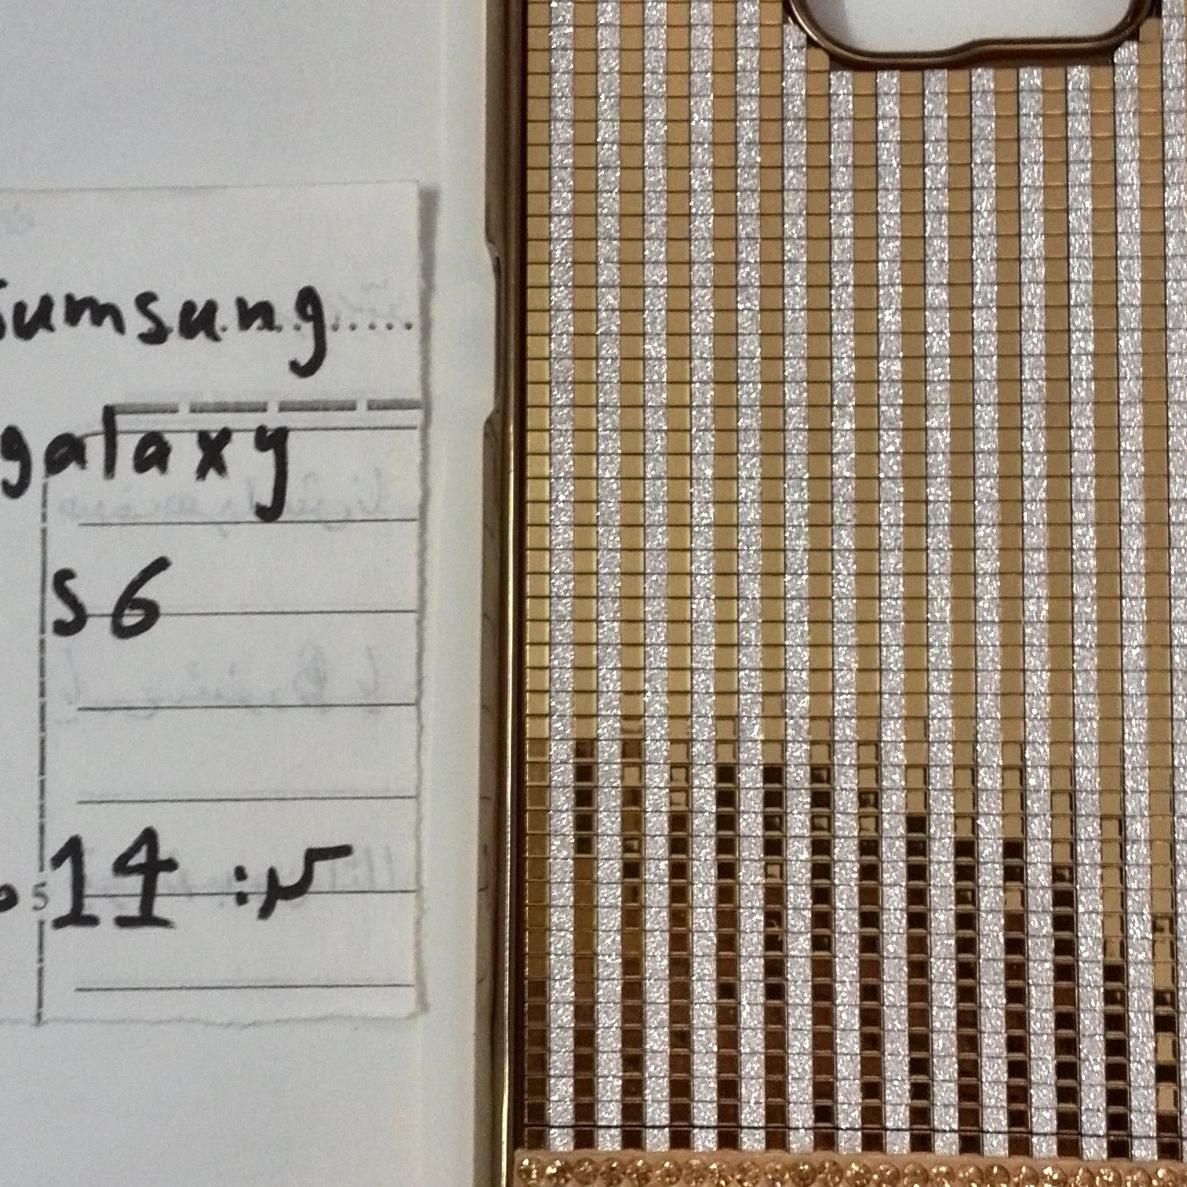 Sumsung.....
galaxy
S6
5 14 :